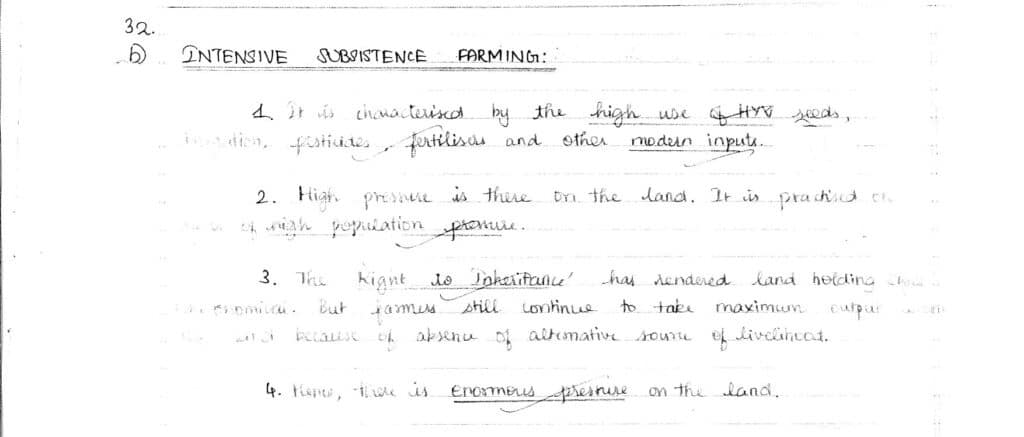 32.
b) INTENSIVE SUBSISTENCE FARMING:
1. It is characterised by the high use of HYV seeds,
pesticides, fertilisers and other modern inputs.
2. High pressure is there on the land. It is practised
of high population pressure.
3. The Right to Inheritance' has rendered land holding
But farmers still continue to take maximum output
because of absence of alternative source of livelihood.
4. Hence, there is enormous pressure on the land.